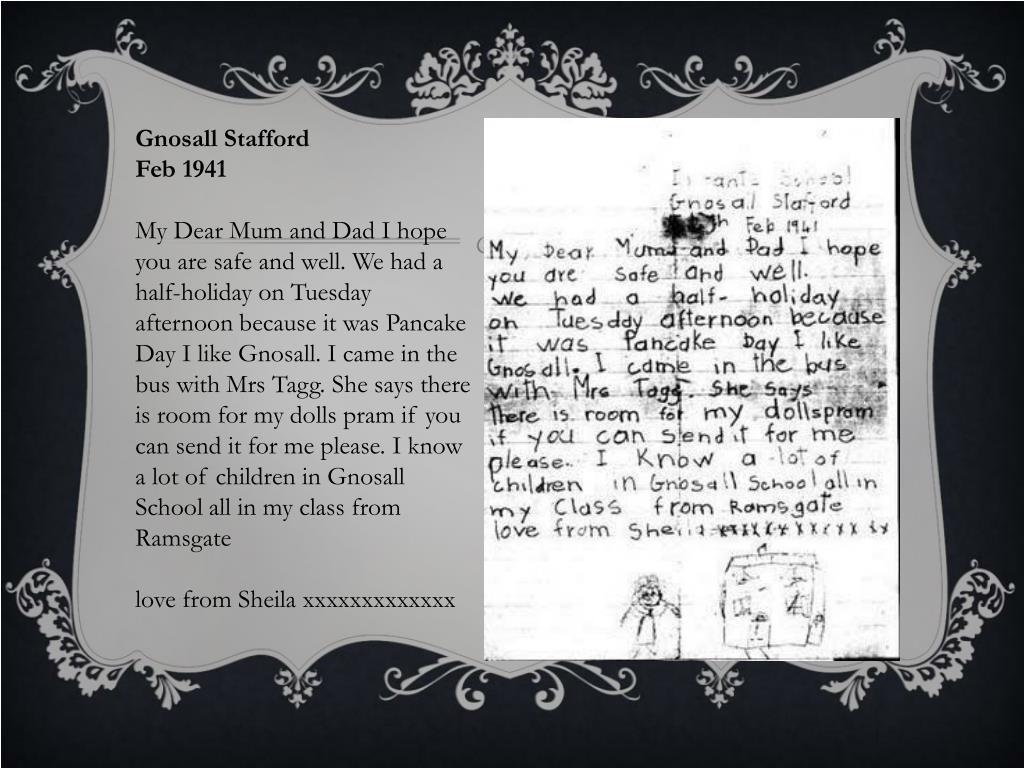 Gnosall Stafford
Feb 1941
My Dear Mum and Dad I hope
you are safe and well. We had a
half-holiday on Tuesday
afternoon because it was Pancake
Day I like Gnosall. I came in the
bus with Mrs Tagg. She says there
is room for my dolls pram if you
can send it for me please. I know
a lot of children in Gnosall
School all in my class from
Ramsgate
love from Sheila xxxxxxxxxxxxx
School
Gnosall Stafford
th Feb 1941
My Dear Mum and Dad I hope
you are safe and well.
we had a half- holiday
on Tuesday afternoon because
it was Pancake Day I like
Gnosall. I came in the bus
with Mrs Tagg. She says
there is room for my dollspram
if you can send it for me
please. I know a lot of
children in Gnosall School all in
my class from Ramsgate
love from Sheila